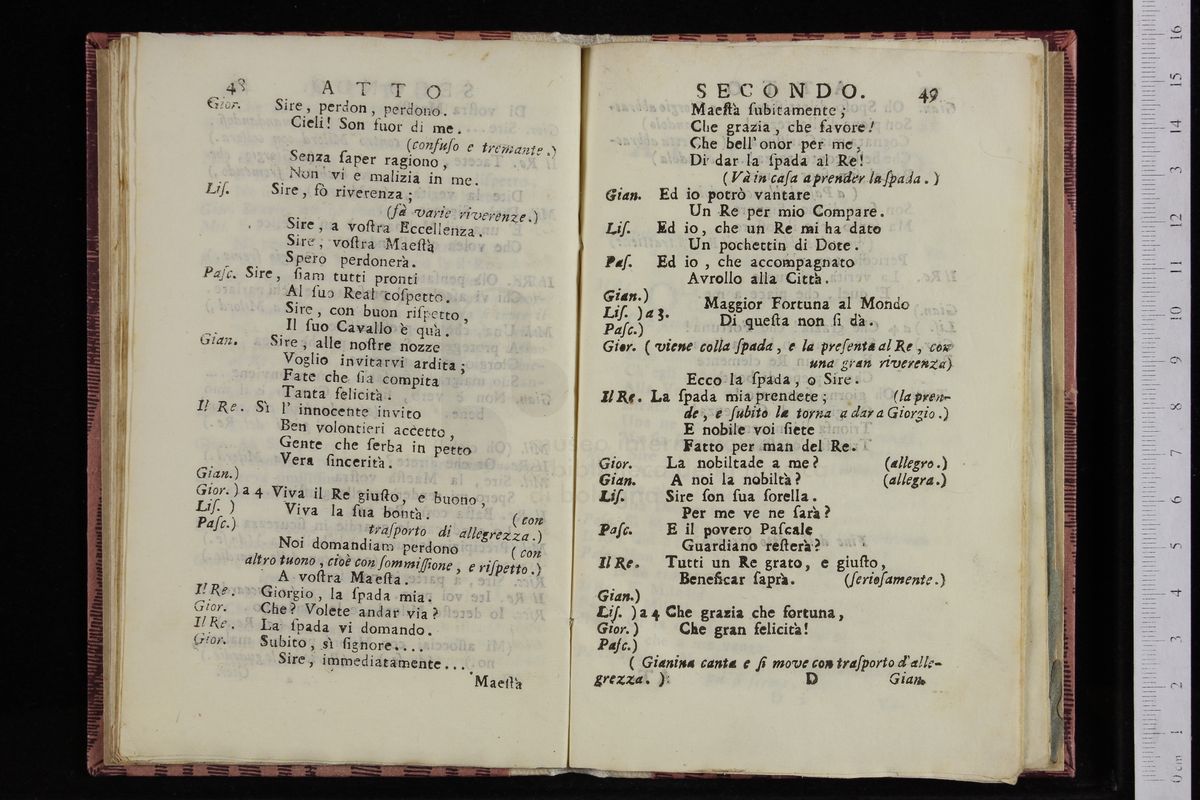 48 ATTO
Gior. Sire, perdon, perdono.
Cieli! Son fuor di me.
(confuſo e tremante.)
Senza ſaper ragiono,
Non vi e malizia in me.
Liſ. Sire, fò riverenza;
(fà varie riverenze.)
Sire, a voſtra Eccellenza.
Sire, voſtra Maeſtà
Spero perdonerà.
Paſc. Sire, ſiam tutti pronti
Al ſuo Real coſpetto.
Sire, con buon riſpetto,
Il ſuo Cavallo è quà.
Gian. Sire, alle noſtre nozze
Voglio invitarvi ardita;
Fate che ſia compita
Tanta felicità.
Il Re. Sì l' innocente invito
Ben volontieri accetto,
Gente che ſerba in petto
Vera ſincerità.
Gian.)
Gior.) a 4 Viva il Re giuſto, e buono,
Liſ. ) Viva la ſua bontà. (con
Paſc.) traſporto di allegrezza.)
Noi domandiam perdono (con
altro tuono, cioè con ſommiſſione, e riſpetto.)
A voſtra Maeſta.
Il Re. Giorgio, la ſpada mia.
Gior. Che? Volete andar via?
Il Re. La ſpada vi domando.
Gior. Subito, sì ſignore....
Sire, immediatamente...
Maeſtà
SECONDO. 49
Maeſtà ſubitamente;
Che grazia, che favore!
Che bell' onor per me,
Di dar la ſpada al Re!
(Và in caſa a prender la ſpada.)
Gian. Ed io potrò vantare
Un Re per mio Compare.
Liſ. Ed io, che un Re mi ha dato
Un pochettin di Dote.
Paſ. Ed io, che accompagnato
Avrollo alla Città.
Gian.)
Liſ. ) a 3. Maggior Fortuna al Mondo
Paſc.) Di queſta non ſi dà.
Gior. (viene colla ſpada, e la preſenta al Re, con
una gran riverenza)
Ecco la ſpada, o Sire.
Il Re. La ſpada mia prendete; (la pren-
de, e ſubito la torna a dar a Giorgio.)
E nobile voi ſiete
Fatto per man del Re.
Gior. La nobiltade a me? (allegro.)
Gian. A noi la nobiltà? (allegra.)
Liſ. Sire ſon ſua ſorella.
Per me ve ne ſarà?
Paſc. E il povero Paſcale
Guardiano reſterà?
Il Re. Tutti un Re grato, e giuſto,
Beneficar ſaprà. (ſerioſamente.)
Gian.)
Liſ. ) a 4 Che grazia che fortuna,
Gior.) Che gran felicità!
Paſc.)
(Gianina canta e ſi move con traſporto d'alle-
grezza.): D Gian.
0 cm 1 2 3 4 5 6 7 8 9 10 11 12 13 14 15 16